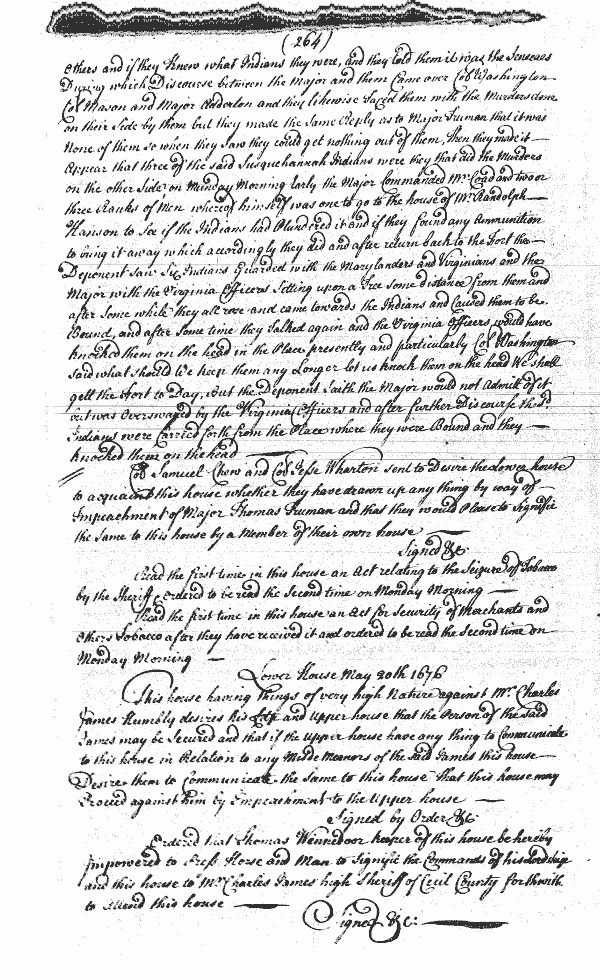 (264)
others and if they knew what Indians they were, and they told them it was the Senecaes
During which Discourse between the Major and them Came over Col: Washington
Col Mason and Major Adderton and they likewise Taxed them with the Murders done
on their Side by them but they made the Same Reply as to Major Truman that it was
None of them so when they Saw they could get nothing out of them, then they made it
Appear that three of the said Susquehannah Indians were they that did the Murders
on the other Side on Munday Morning Early the Major Commanded Mr Coad and two or
three Ranks of Men whereof himself was one to go to the house of Mr Randolph
Hanson to See if the Indians had Plundered it and if they found any Ammunition
to bring it away which accordingly they did and after return back to the Fort the
Deponent saw Six Indians Guarded with the Marylanders and Virginians and the
Major with the Virginia Officers Sitting upon a Tree some distance from them and
after Some while they all rose and came towards the Indians and Caused them to be
Bound, and after Some time they Talked again and the Virginia Officers would have
knocked them on the head in the Place presently and particularly Col Washington
Said what should We keep them any Longer let us knock them on the head We shall
gett the Fort to Day, But the Deponent Saith the Major would not Admitt of it
but was Overswayed by the Virginia Officers and after further Discourse the Sd
Indians were Carried forth from the Place where they were Bound and they
knocked them on the head
Col Samuel Chew and Col Jesse Wharton sent to Desire the lower house
to acquaint this house whether they have drawn up any thing by way of
Impeachment of Major Thomas Truman and that they would Please to Signifie
the Same to this house by a Member of their own house
Signed &c:
Read the first time in this house an Act relating to the Seizure of Tobacco
by the Sheriff ordered to be read the Second time on Monday Morning
Read the first time in this house an Act for Security of Merchants and
others Tobacco after they have received it and ordered to be read the Second time on
Monday Morning
Lower House May 20th 1676
This house having things of very high Nature against Mr Charles
James humbly desires his and upper house that the Person of the Said
James may be Secured and that if the upper house have any thing to Communicate
to this house in Relation to any Misdemeanors of the said James this house
Desire them to Communicate the Same to this house that this house may
Proceed against him by Impeachment to the Upper house
Signed by Order &c:
Ordered that Thomas keeper of this house be hereby
Impowered to Press Horse and Man to Signifie the Commands of his Lordship
and this house to Mr Charles James high Sheriff of Cecil County forthwith
to Attend this house
Signed &c: